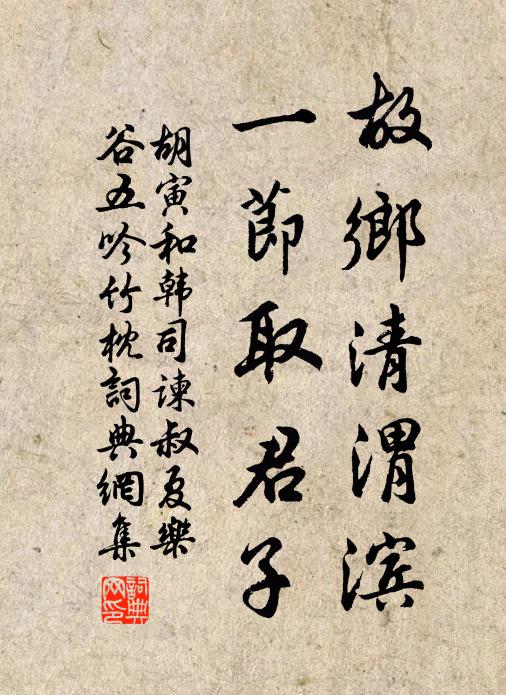 故鄉清渭滨
一節取君子
胡寅和韩司諫叔夏樂
谷五吟竹枕詞典網集
詞典
网印